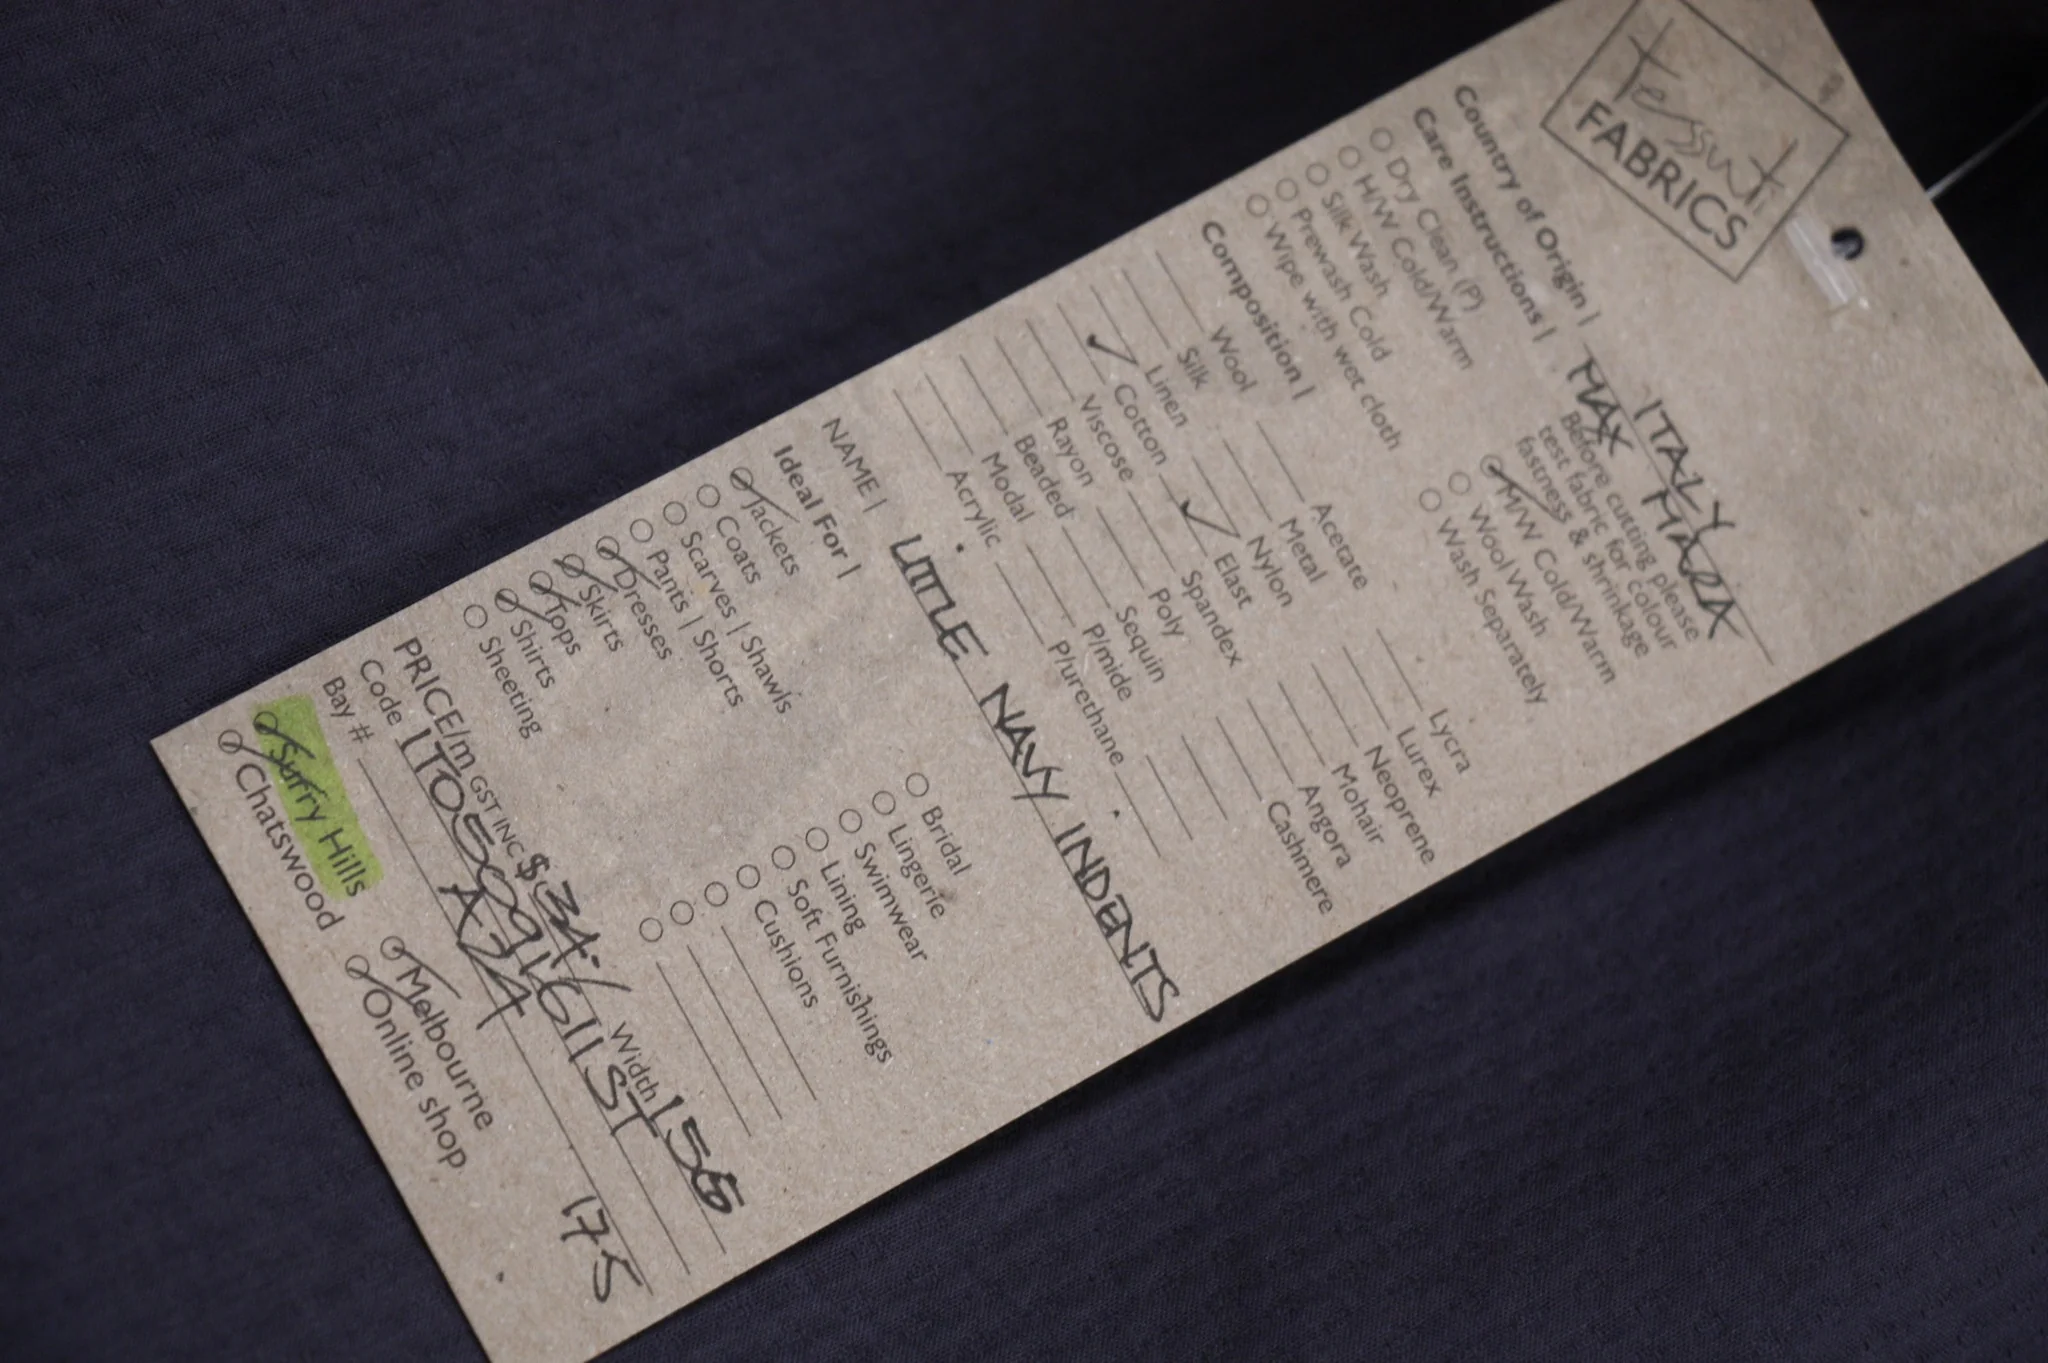 tessuti
FABRICS
Country of Origin | ITALY
MAX MARA
Care Instructions | Before cutting please
test fabric for colour
fastness & shrinkage
Dry Clean (P) M/W Cold/Warm
H/W Cold/Warm Wool Wash
Silk Wash Wash Separately
Prewash Cold
Wipe with wet cloth
Composition |
Wool Acetate Lycra
Silk Metal Lurex
Linen Nylon Neoprene
✓ Cotton ✓ Elast Mohair
Viscose Spandex Angora
Rayon Poly Cashmere
Beaded Sequin
Modal P/mide
Acrylic P/urethane
NAME | LITTLE NAVY INDENTS
Ideal For |
Jackets Bridal
Coats Lingerie
Scarves | Shawls Swimwear
Pants | Shorts Lining
Dresses Soft Furnishings
Skirts Cushions
Tops
Shirts
Sheeting
PRICE/m GST INC $34./ Width 150
Code
Bay # A74 17.5
Surry Hills Melbourne
Chatswood Online shop